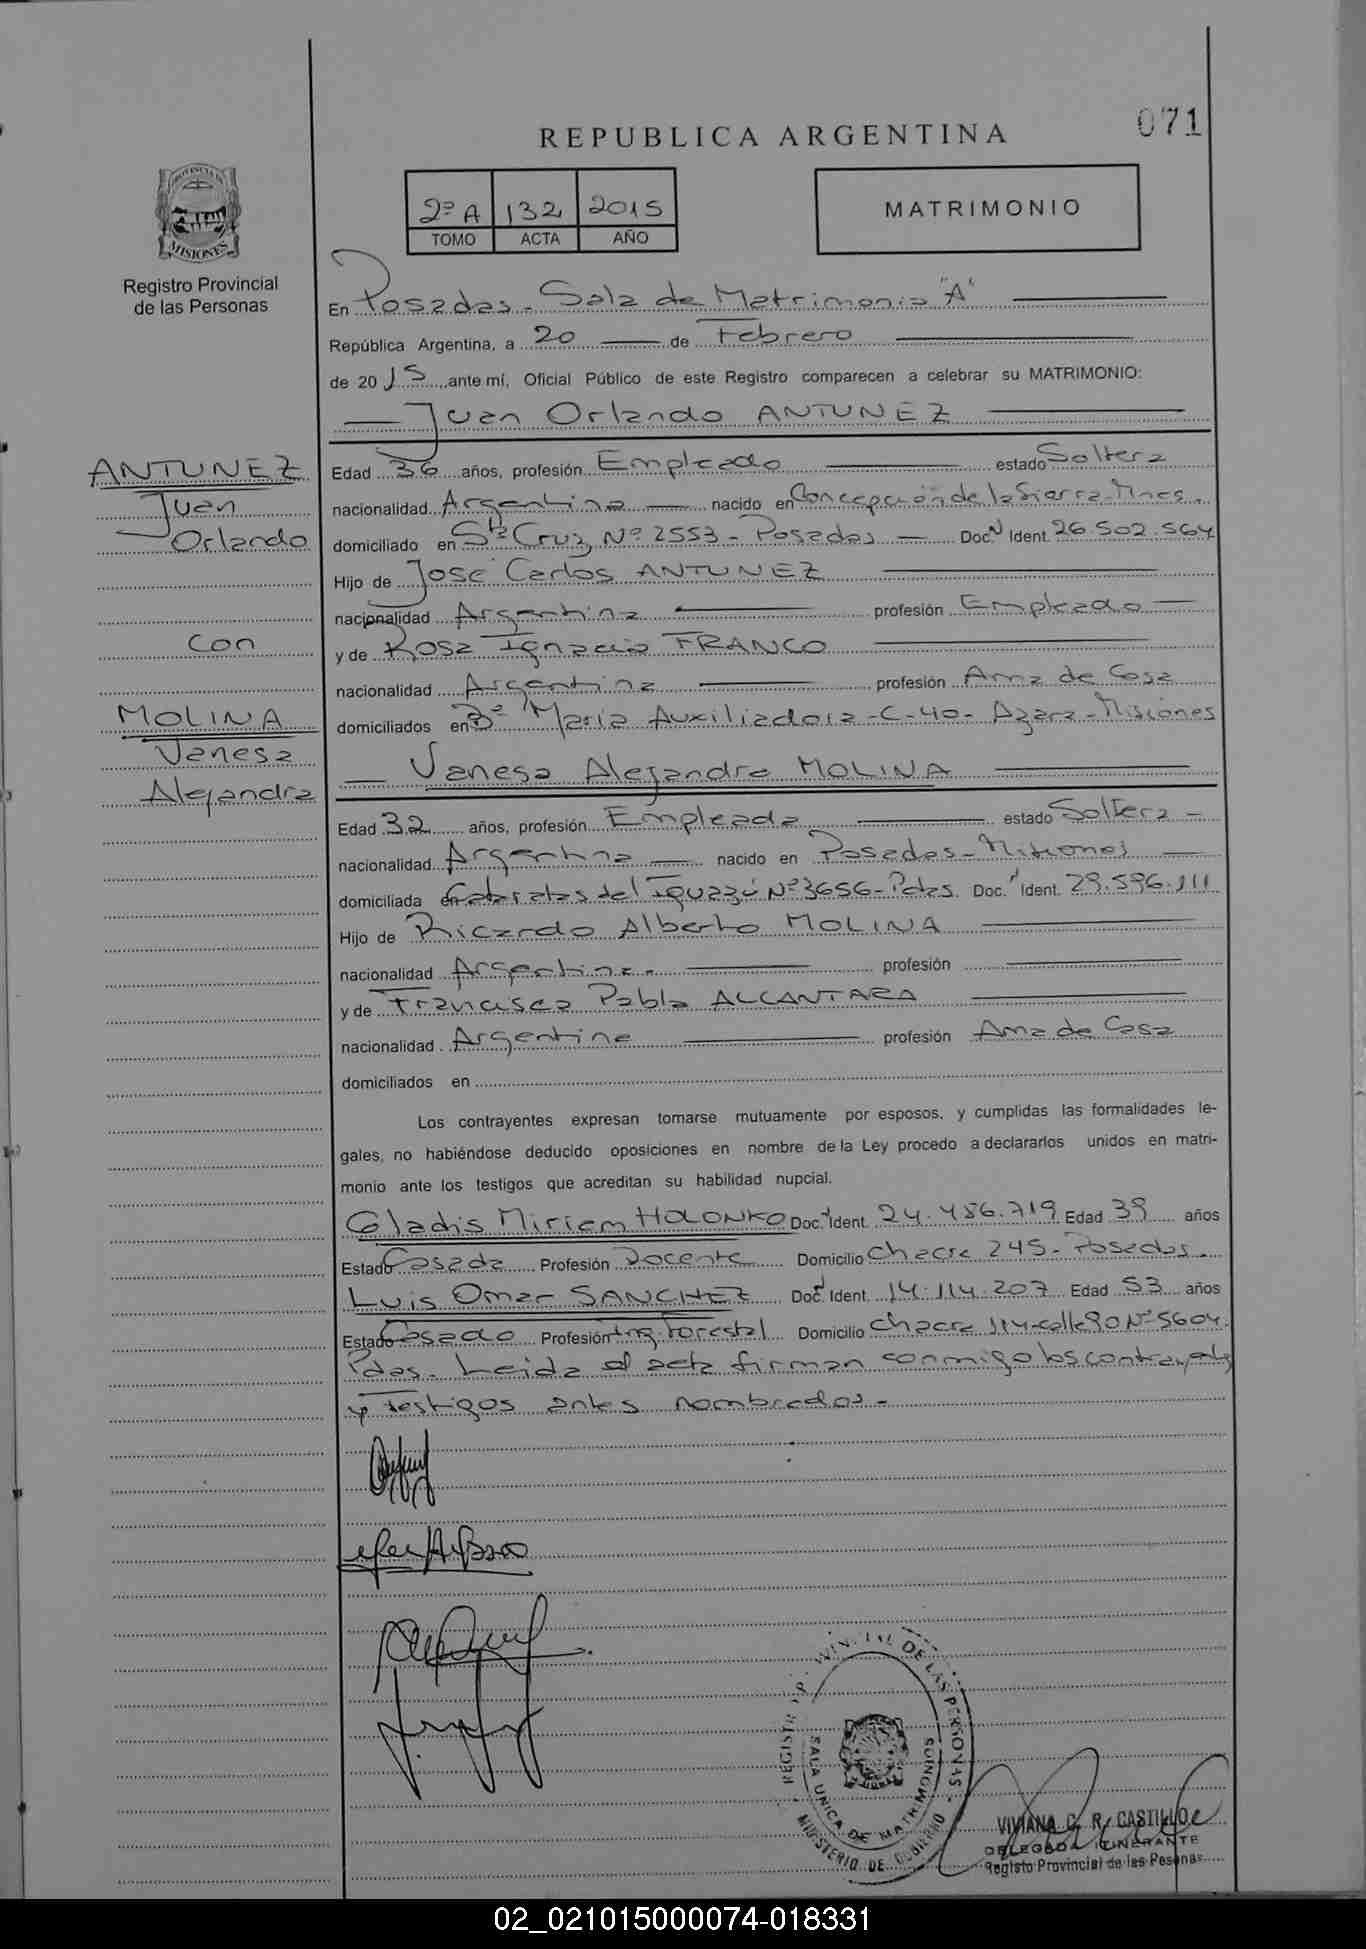 071
REPUBLICA ARGENTINA
2º A 132 2015
TOMO ACTA AÑO
MATRIMONIO
PROVINCIA DE MISIONES
Registro Provincial
de las Personas
En Posadas - Sala de Matrimonio "A"
República Argentina, a 20 de Febrero
de 2015, ante mí, Oficial Público de este Registro comparecen a celebrar su MATRIMONIO:
Juan Orlando ANTUNEZ
ANTUNEZ
Juan
Orlando
con
MOLINA
Vanesa
Alejandra
Edad 36 años, profesión Empleado estado Soltera
nacionalidad Argentina nacido en Concepción de la Sierra - Mnes.
domiciliado en Sta Cruz Nº 2553 - Posadas Doc. Ident. 26.502.564
Hijo de José Carlos ANTUNEZ
nacionalidad Argentina profesión Empleado
y de Rosa Ignacia FRANCO
nacionalidad Argentina profesión Ama de Casa
domiciliados en Bº Maria Auxiliadora - C-40 - Azara - Misiones
Vanesa Alejandra MOLINA
Edad 32 años, profesión Empleada estado Soltera -
nacionalidad Argentina nacido en Posadas - Misiones
domiciliada en Cataratas del Iguazú Nº 3656 - Pdas. Doc. Ident. 29.596.111
Hijo de Ricardo Alberto MOLINA
nacionalidad Argentina - profesión
y de Francisca Pabla ALCANTARA
nacionalidad Argentina profesión Ama de Casa
domiciliados en
Los contrayentes expresan tomarse mutuamente por esposos, y cumplidas las formalidades le-
gales, no habiéndose deducido oposiciones en nombre de la Ley procedo a declararlos unidos en matri-
monio ante los testigos que acreditan su habilidad nupcial.
Gladis Miriam HOLONKO Doc. Ident. 24.486.719 Edad 39 años
Estado Casada Profesión Docente Domicilio Chacra 245 - Posadas.
Luis Omar SANCHEZ Doc. Ident. 14.114.207 Edad 53 años
Estado Casado Profesión Ing. Forestal Domicilio Chacra 114 - calle 90 Nº 5604.
Pdas. Leida el acta firman conmigo los contrayentes
y testigos antes nombrados -
REGISTRO PROVINCIAL DE LAS PERSONAS
SALA UNICA DE MATRIMONIOS
MINISTERIO DE GOBIERNO
VIVIANA C. R. CASTILLO
DELEGADA ITINERANTE
Registo Provincial de las Pesonas
02_021015000074-018331